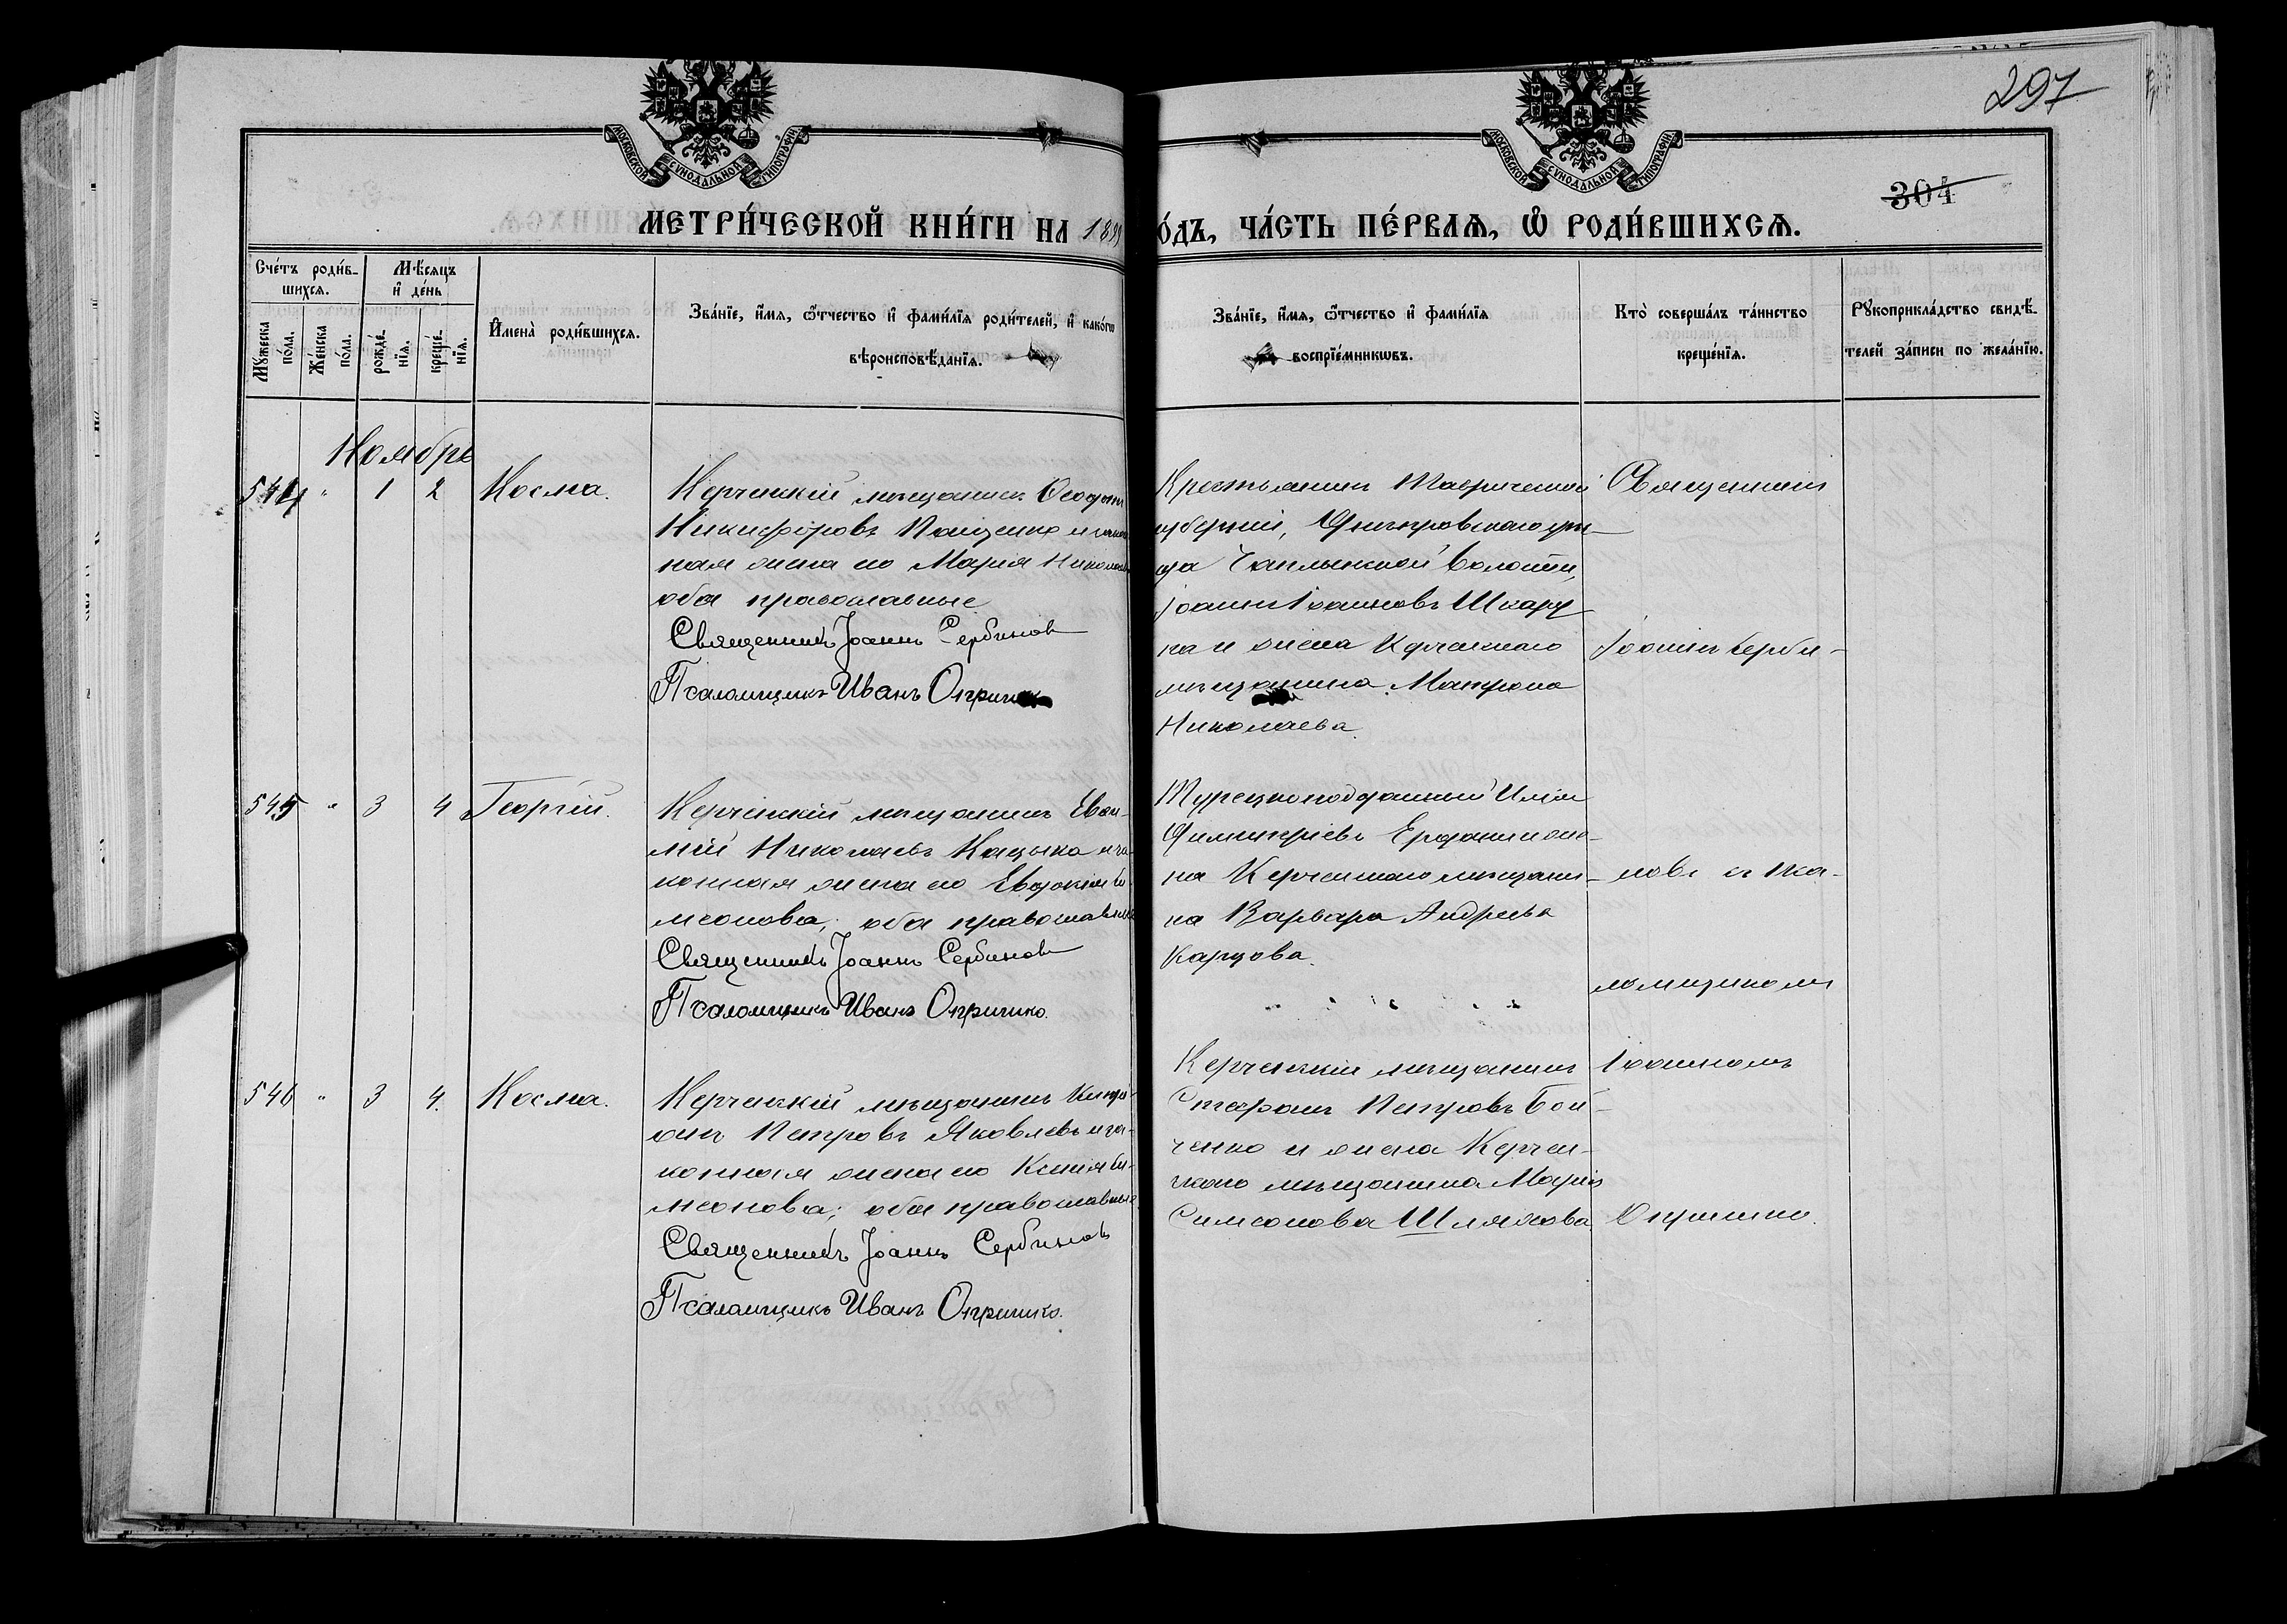 297
304
МОСКОВСКОЙ СѴНОДАЛЬНОЙ ТИПОГРАФІИ
МОСКОВСКОЙ СѴНОДАЛЬНОЙ ТИПОГРАФІИ
МЕТРИ́ЧЕСКОЙ КНИ́ГИ НА 1899
О́ДЪ, ЧА́СТЬ ПЕ́РВАѦ, Ѡ҆ РОДИ́ВШИХСѦ.
Сче́тъ роди́в-
шихсѧ.
Мꙋжеска
по́ла.
Же́нска
по́ла.
Мѣ́сѧцъ
и҆ де́нь
рожде́-
нїѧ.
креще́-
нїѧ.
И҆мена̀ роди́вшихсѧ.
Зва́нїе, и҆́мѧ, ѻ҆́тчество и҆ фами́лїѧ роди́телей, и҆ како́гѡ
вѣроисповѣ́данїѧ.
Зва́нїе, и҆́мѧ, ѻ҆́тчество и҆ фами́лїѧ
воспрїе́мникѡвъ.
Кто̀ соверша́лъ та́инство
креще́нїѧ.
Рꙋкоприкла́дство свидѣ́-
телей за́писи по жела́нїю.
Ноябрь
544 " 1 2 Косма.
Керченскій мѣщанинъ
Никифоровъ Пащенко и
ная жена его Марія
оба православные.
Священникъ Іоаннъ Сербиновъ
Псаломщикъ Иванъ
Крестьянинъ Таврической
губерніи, Днѣпровскаго уѣз-
да Чаплынской волости,
Іоаннъ Іоанновъ
на и жена Керченскаго
мѣщанина Матрона
Николаева.
Священникъ
Іоаннъ Серби-
545 " 3 4 Георгій.
Керченскій мѣщанинъ
Николаевъ Кацыка и за-
конная жена его Евдокія Си-
меонова; оба православные
Священникъ Іоаннъ Сербиновъ
Псаломщикъ Иванъ Опришко.
Турецкоподданный Илія
Димитріевъ и же-
на Керченскаго мѣщани-
на Варвара Андреева
Карцова.
новъ съ Пса-
ломщикомъ
546 " 3 4. Косма.
Керченскій мѣщанинъ Кипрі-
анъ Петровъ Яковлевъ и за-
конная жена его Ксенія Си-
меонова; оба православные.
Священникъ Іоаннъ Сербиновъ
Псаломщикъ Иванъ Опришко.
Керченскій мѣщанинъ
Стефанъ Петровъ Бой-
ченко и жена Керчен-
скаго мѣщанина Марія
Симеонова Шляхова
Іоанномъ
Опришко.